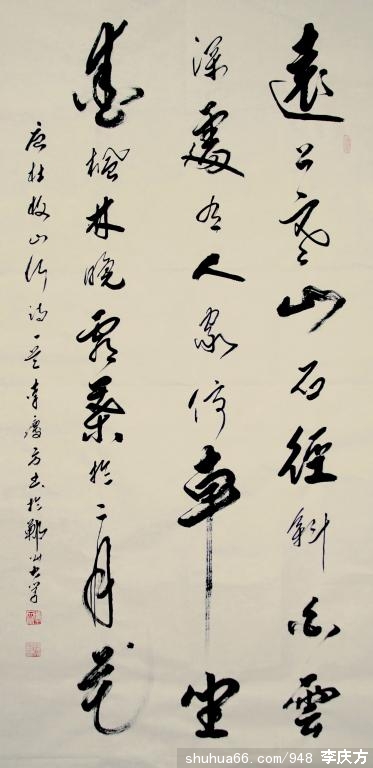 遠上寒山石徑斜白雲
深處有人家停車坐
愛楓林晚霜葉於二月花
唐杜牧山行詩一首李慶方書於鄭州大學
shuhua66.com/948 李庆方